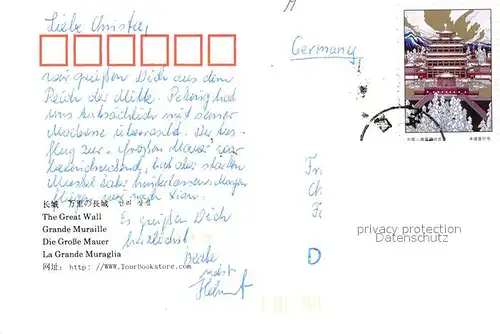 Liebe Christa,
wir grüßen Dich aus dem
Reich der Mitte. Peking hat
uns hauptsächlich mit seiner
Moderne überrascht. Der Aus-
flug zur "Großen Mauer" war
beeindruckend, hat aber starken
Muskelkater hinterlassen. Morgen
fliegen wir nach Xian.
Es grüßen Dich
herzlichst
Beate
und
Helmut
长城 万里の長城 만리 장성
The Great Wall
Grande Muraille
Die Große Mauer
La Grande Muraglia
网址: http://www.TourBookstore.com
Germany
Fr
D
privacy protection
Datenschutz